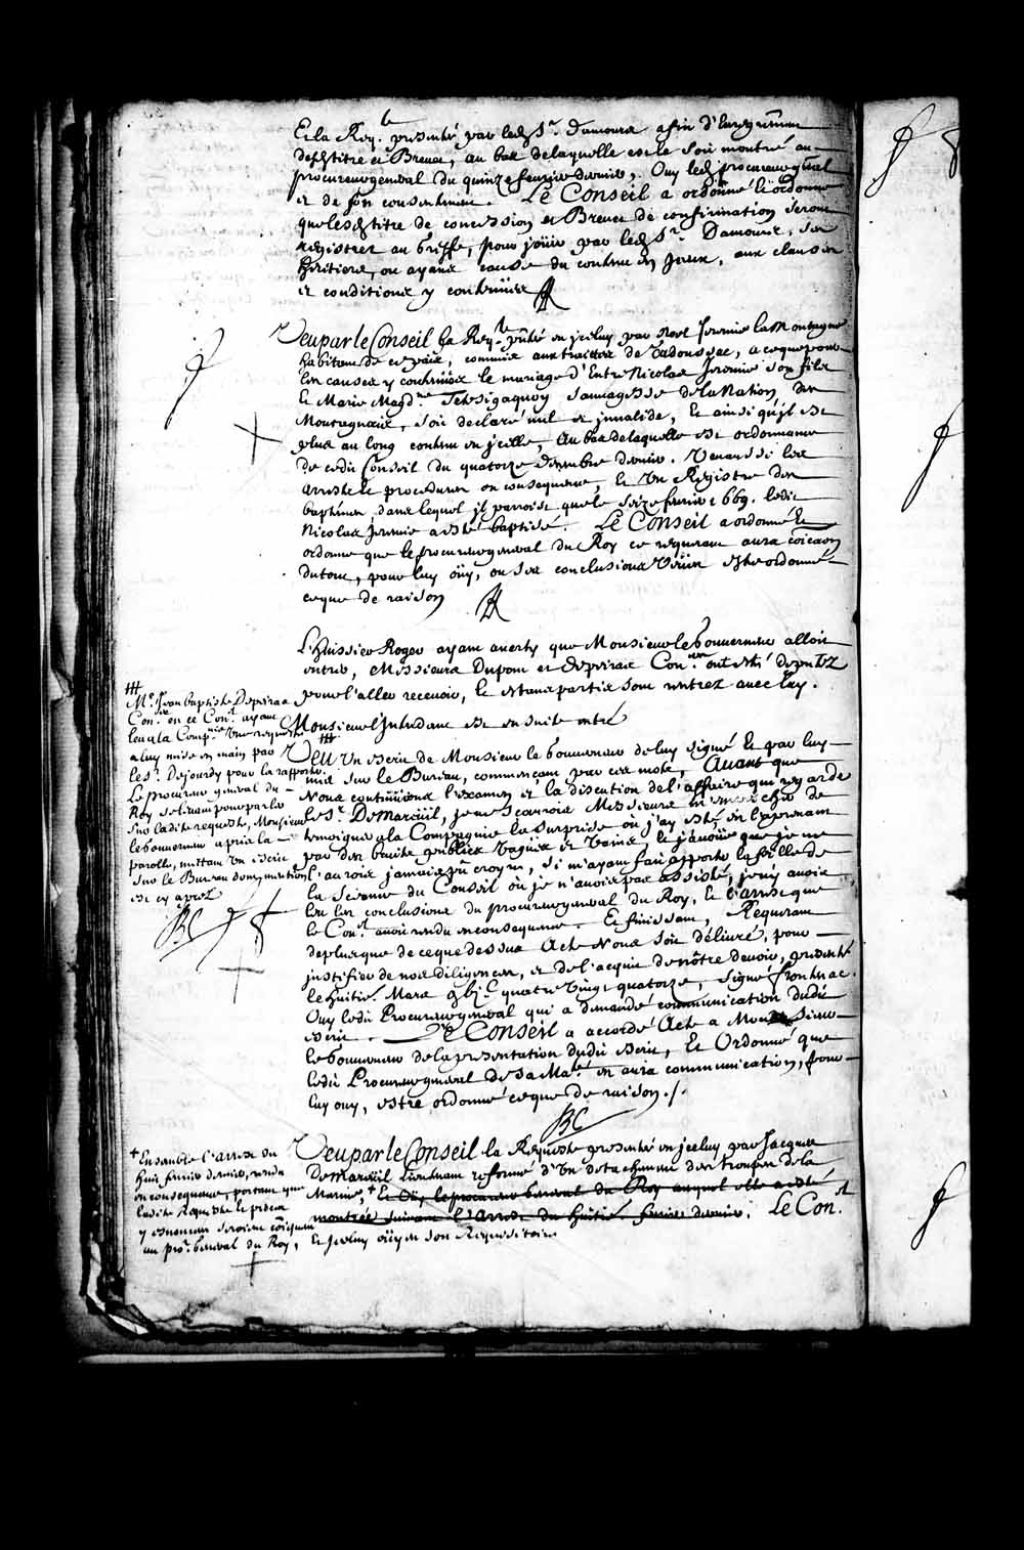 Et la Req.te presenté par led. Sr. Damours afin d'Enregistrement
desd. titre et Brevet, au bas de laquelle est le soit montré au
procureur general du quinze fevrier dernier. Ouy led. procureur gñal
et de son consentement. Le Conseil a ordonné et ordonne
que lesd. titre de concession et Brevet de confirmation seront
registrez au Greffe, pour joüir par led. Sr. Damours, ses
heritiers, ou ayans cause du contenu en jceux, aux clauses
et conditions y contenües
Veu par le Conseil la Req.te pñtée en jceluy par Noel Jeremie la Montagne
habitant de ce païs, commis aux traittes de Tadoussac, a ce que pour
les causes y contenües le mariage d'Entre Nicolas Jeremie son fils
Et Marie Magd.ne Tetesigaguoy sauvagesse de la Nation des
Montagnais, soit declaré nul et jnvalide, Et ainsi qu'jl est
plus au long contenu en jcelle, Au bas de laquelle est ordonnance
de cedit Conseil du quatorze decembre dernier. Veu aussi les
arrests et procedures en consequence, Et Un Registre des
baptesmes dans lequel jl paroist que le seize fevrier 1669. ledit
Nicolas Jeremie a esté baptisé. Le Conseil a ordonné Et
ordonne que le procureur general du Roy ce requerant aura coïcaon
du tout, pour luy oüy, ou ses conclusions Veües estre ordonné
ce que de raison
L'huissier Roger ayant averty que Monsieur le Gouverneur alloit
entrer, Messieurs Dupont et Depeiras Con.ers ont esté deputez
pour l'aller recevoir, Et estans partis sont rentrez avec luy.
Monsieur l'Intendant est en suite entré
Veu Un escrit de Monsieur le Gouverneur de luy signé Et par luy
mis sur le Bureau, commençant par ces mots, Avant que
Nous continuions l'examen et la discution de l'affaire qui regarde
le Sr. Demareüil, je ne sçaurois Messieurs m'empescher de
temoigner a la Compagnie la surprise où j'ay esté, en l'aprenant
par des bruits publics Vagues et Vains, Et j'avoüe que je ne
l'aurois jamais pû croire, si m'ayant fait apporter la feüille de
la seance du Conseil où je n'avois pas assisté, je n'y avois
leu les conclusions du procureur general du Roy, Et l'arrest que
le Con.l avoit rendu en consequence. Et finissant, Requerant
de plus que de ce que dessus Acte Nous soit délivré, pour
justifier de nos diligences, et de l'acquit de nôtre devoir, presenté
le huitie. Mars gbj.c quatre Vingt quatorze, signé frontenac.
Ouy ledit Procureur general qui a demandé communication dudit
escrit. Le Conseil a accordé Acte a Monsieur
le Gouverneur de la presentation dudit escrit, Et Ordonné que
ledit Procureur general de Sa Ma.té en aura communication, pour
luy ouy, estre ordonné ce que de raison ./.
Veu par le Conseil la Requeste presentée en jceluy par Jacques
Demareüil Lieutenant reformé d'Un detachement des troupes de la
Marine, + Et Oüy le procureur General du Roy auquel elle a esté
montrée suivant l'arrest du huitie. fevrier dernier. Le Con.l
Et jceluy oüy en son Requisitoire
Me. Jean baptiste Depeiras
Con.er en ce Con.l ayant
leu a la Comp.nie Une requeste
a luy mise en main par
le Sr. Dejourdy pour la rapporter
Le procureur general du
Roy se levant pour parler
sur ladite requeste, Monsieur
le Gouverneur a pris la
parolle, mettant Un escrit
sur le Bureau dont mention
est cy aprez
+ Ensemble l'arrest du
huit fevrier dernier, rendu
en consequence, portant que
ladite Requeste et pieces
y enoncees seroient coïquees
au pr.r General du Roy,